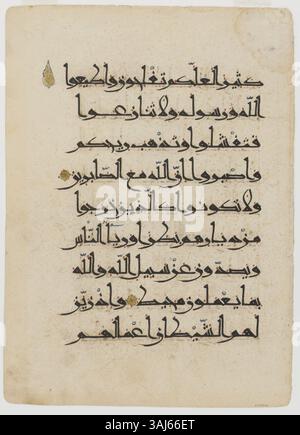 كثيرا لعلكم تفلحون واطيعوا
الله ورسوله ولا تنازعوا
فتفشلوا وتذهب ريحكم
واصبروا ان الله مع الصابرين
ولا تكونوا كالذين خرجوا
من ديارهم بطرا ورياء الناس
ويصدون عن سبيل الله والله
بما يعملون محيط واذ زين
لهم الشيطان اعمالهم
2AJ66ET